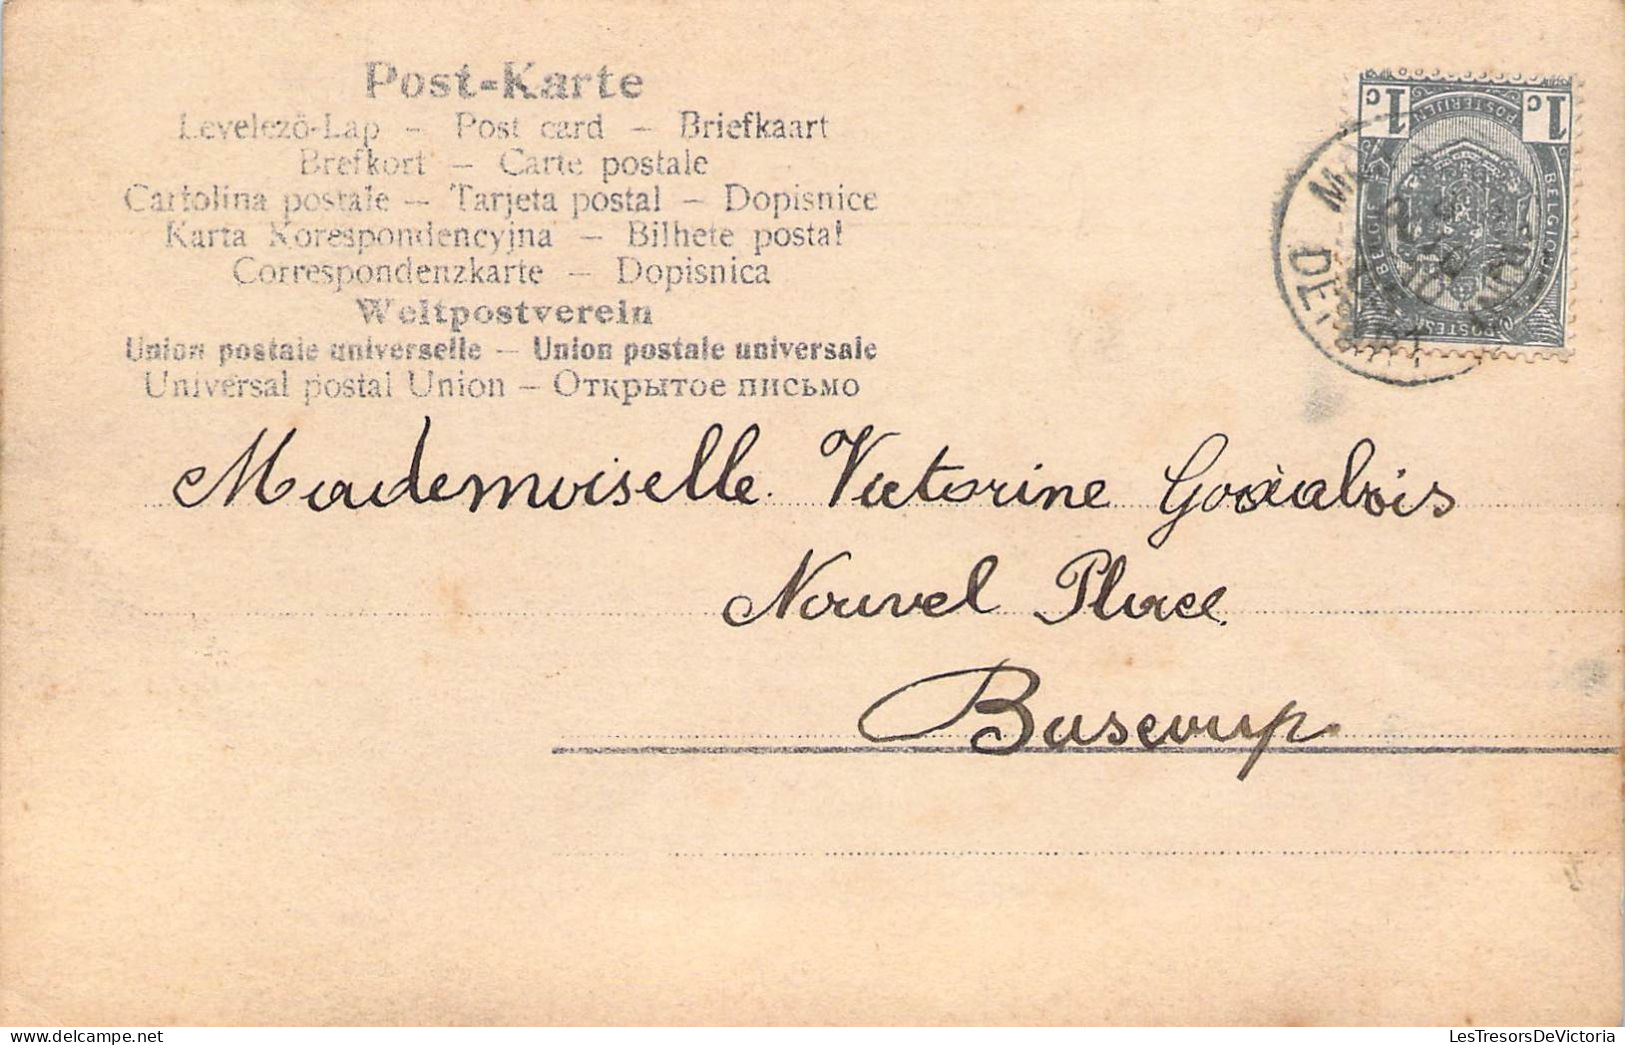 Post-Karte
Levelező-Lap – Post card – Briefkaart
Brefkort – Carte postale
Cartolina postale – Tarjeta postal – Dopisnice
Karta Korespondencyjna – Bilhete postal
Correspondenzkarte – Dopisnica
Weltpostverein
Union postale universelle – Union postale universale
Universal postal Union – Открытое письмо
1c 1c
POSTERIJEN
BELGIQUE
POSTES
Mademoiselle Victorine
Nouvel Place
Basecup
LesTresorsDeVictoria